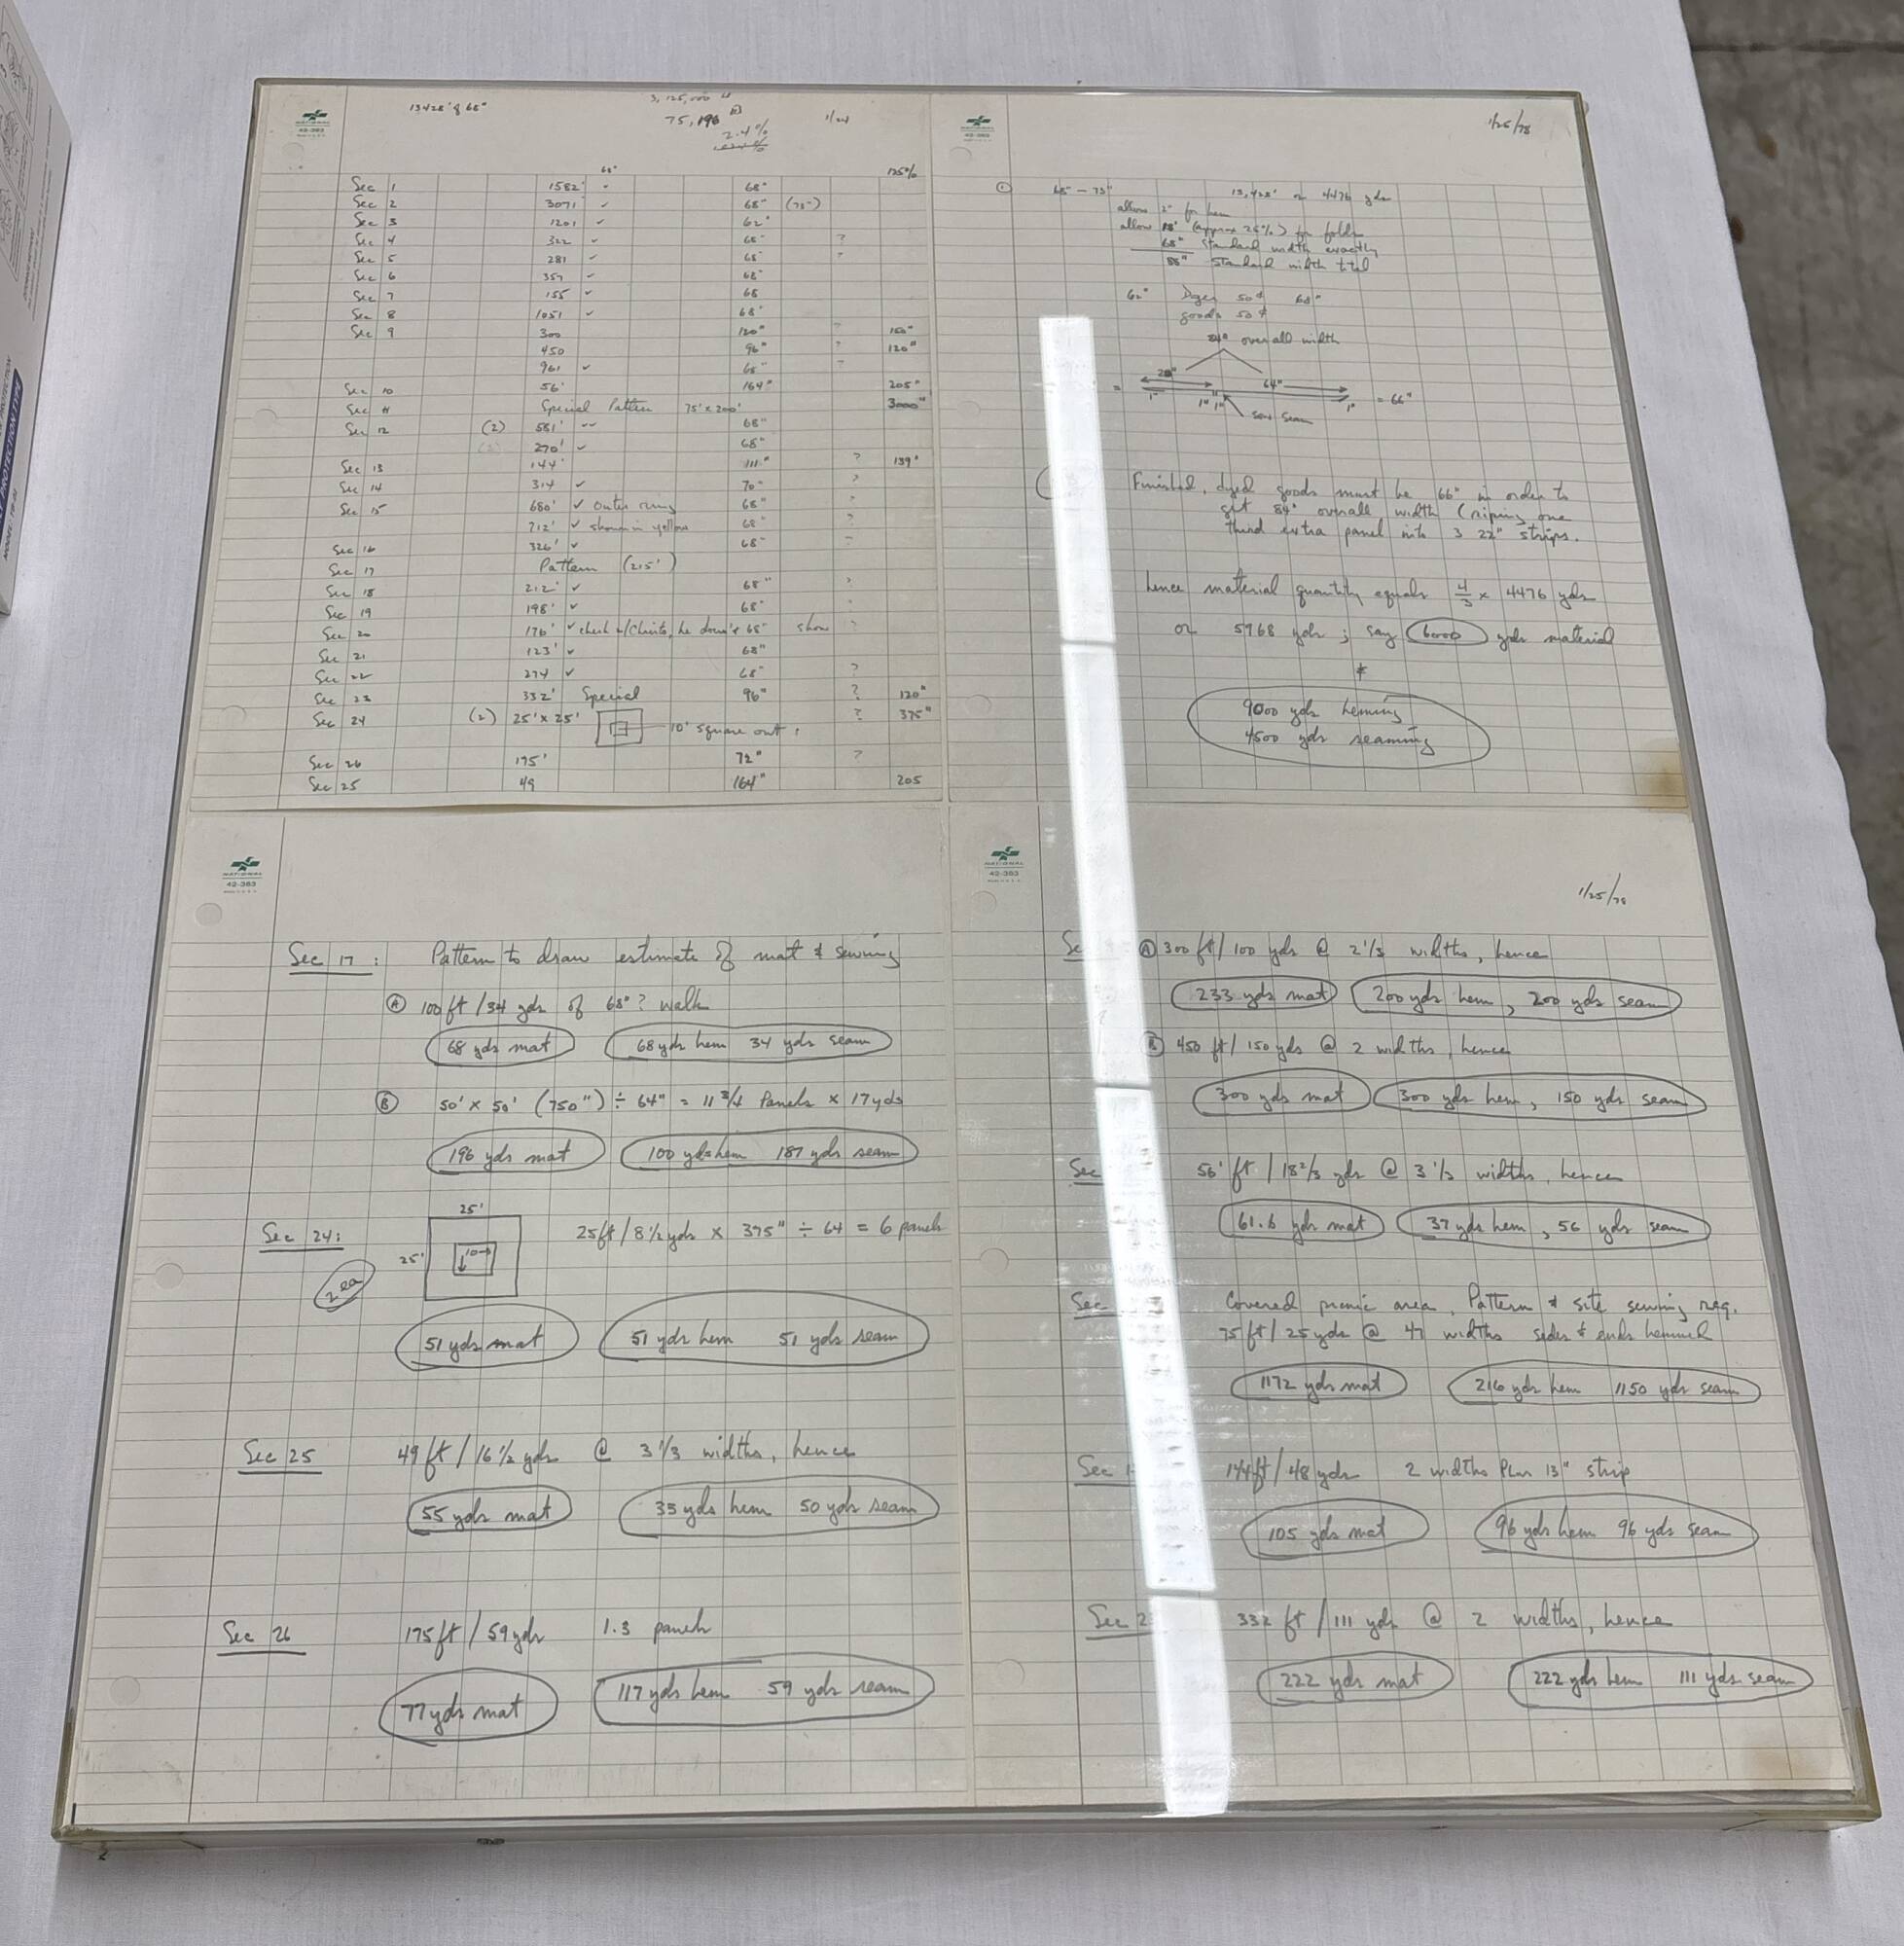 NATIONAL
42-383
13428' of 68"
3,125,000
75,196
2.4%
68"
125%
Sec 1 1582' 68"
Sec 2 3071 ✓ 68" (75")
Sec 3 1201 ✓ 62"
Sec 4 322 ✓ 68" ?
Sec 5 281 ✓ 68" ?
Sec 6 357 ✓ 68"
Sec 7 155 ✓ 68
Sec 8 1051 ✓ 68"
Sec 9 300 120" ? 150"
450 96" ? 120"
961 ✓ 68"
Sec 10 56' 164" 205"
Sec 11 Special Pattern 75' x 200' 3000"
Sec 12 (2) 581' 68"
270' ✓ 68"
Sec 13 144' 111" ? 139"
Sec 14 314 ✓ 70" ?
Sec 15 680' ✓ outer ring 68" ?
712' ✓ shown in yellow 68" ?
Sec 16 326' ✓ 68" ?
Sec 17 Pattern (215')
Sec 18 212' ✓ 68" ?
Sec 19 198' ✓ 68"
Sec 20 176' ✓ check w/Christo, he 68" show ?
Sec 21 123' ✓ 68"
Sec 22 274 ✓ 68" ?
Sec 23 332' Special 96" ? 120"
Sec 24 (2) 25' x 25' 10' square out ? 375"
Sec 26 175' 72" ?
Sec 25 49 164" 205
NATIONAL
42-383
1/25/78
68" - 73" 13,428' or 4476 yds
allow 2" for hem
allow 18" (approx 25%) for folds
68" standard width exactly
88" standard width total
62" Dyer 50¢ 68"
goods 50¢
84" overall width
64"
1" 1" 1" 1" = 66"
sew seam
Finished, dyed goods must be 66" in order to
get 84" overall width (riping one
third extra panel into 3 22" strips.
hence material quantity equals 4/3 x 4476 yds
or 5968 yds; say 6000 yds material
9000 yds heming
4500 yds seaming
NATIONAL
42-383
Sec 17: Pattern to draw estimate of mat & sewing
A 100 ft / 34 yds of 68"? walk
68 yds mat 68 yds hem 34 yds seam
B 50' x 50' (750") ÷ 64" = 11 3/4 Panels x 17 yds
196 yds mat 100 yds hem 187 yds seam
25'
Sec 24: 25' 10 25 ft / 8 1/2 yds x 375" ÷ 64 = 6 panels
2 ea
51 yds mat 51 yds hem 51 yds seam
Sec 25 49 ft / 16 1/2 yds @ 3 1/3 widths, hence
55 yds mat 33 yds hem 50 yds seam
Sec 26 175 ft / 59 yds 1.3 panels
77 yds mat 117 yds hem 59 yds seam
NATIONAL
42-383
1/25/78
A 300 ft / 100 yds @ 2 1/3 widths, hence
233 yds mat 200 yds hem, 200 yds seam
B 450 ft / 150 yds @ 2 widths, hence
300 yds mat 300 yds hem, 150 yds seam
Sec 56' ft / 18 2/3 yds @ 3 1/3 widths, hence
61.6 yds mat 37 yds hem, 56 yds seam
Sec Covered picnic area, Pattern & site sewing req.
75 ft / 25 yds @ 47 widths sides & ends hemmed
1172 yds mat 216 yds hem 1150 yds seam
Sec 144 ft / 48 yds 2 widths Plus 13" strip
105 yds mat 96 yds hem 96 yds seam
Sec 2 332 ft / 111 yds @ 2 widths, hence
222 yds mat 222 yds hem 111 yds seam